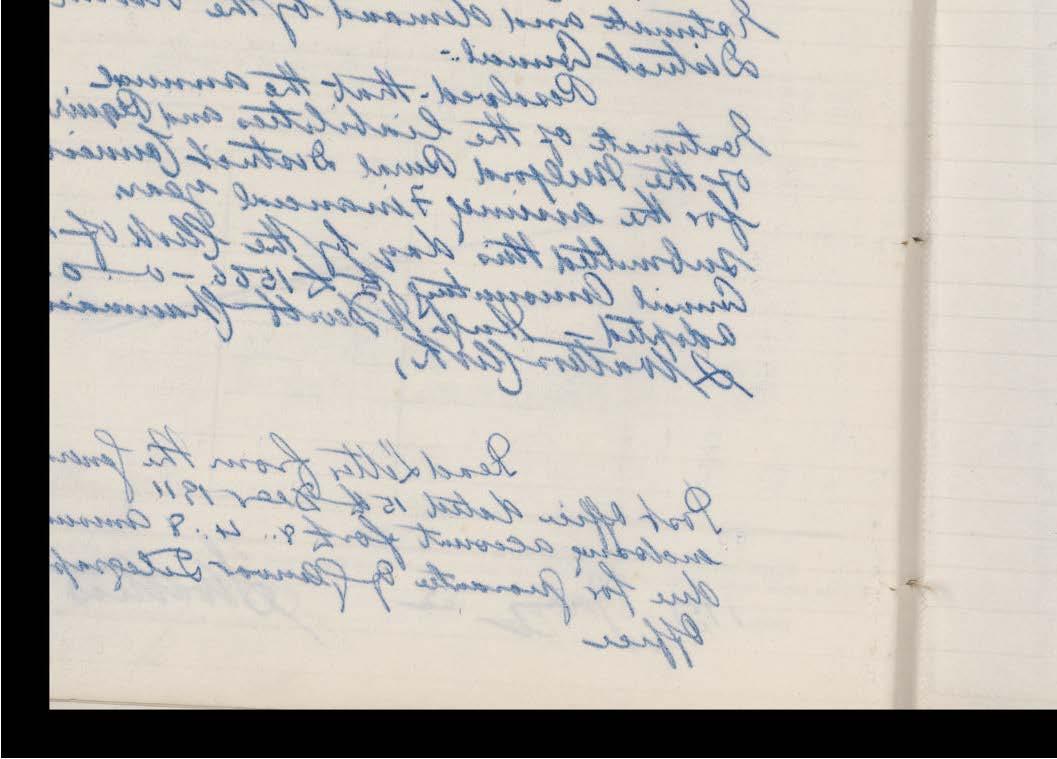 Estimate and demand of the
District Council.-
Resolved - that the annual
Estimate of the liabilities and Requir
of the Milford Rural District Council
for the ensuing Financial year
submitted this day by the Clerk of
Council amounting to £1566-0-0
adopted - Chairman
Clerk,
Read Letter from the Gener
Post Office dated 15th Decr 1911
enclosing account for £8..4..8 amoun
due for guarantee of Telegrap
Office